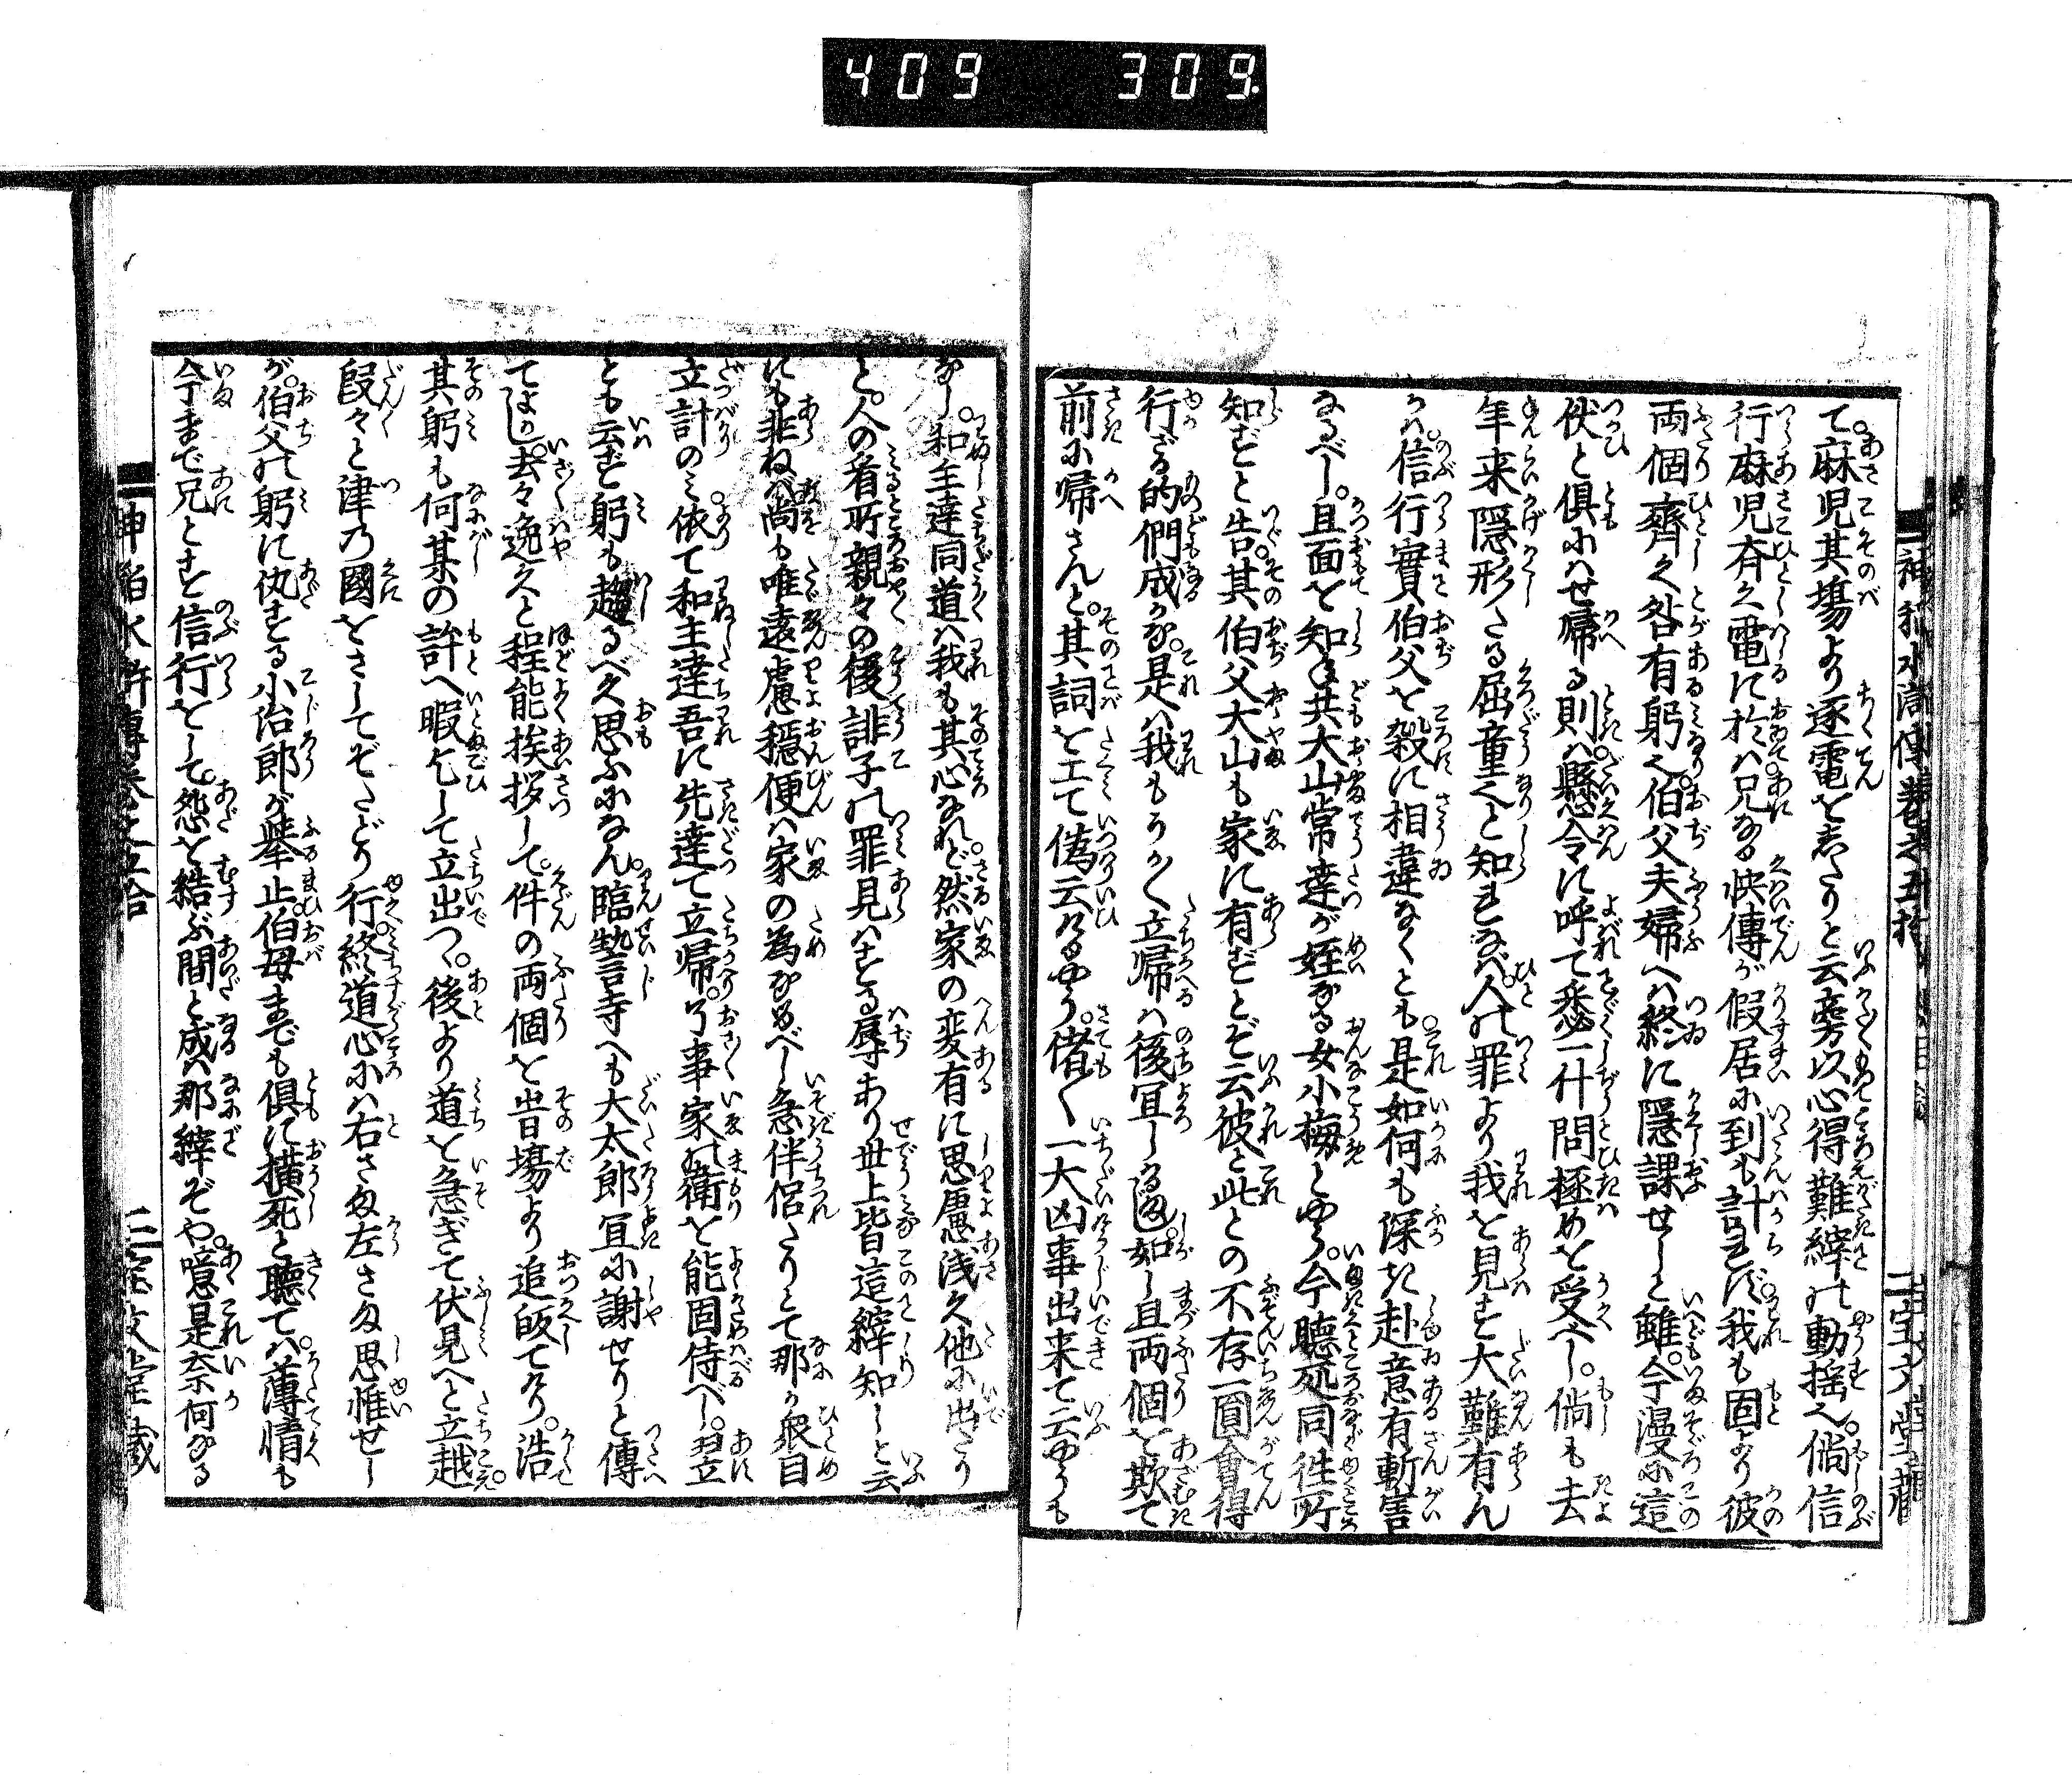 409 309.
て。麻児其場より逐電をしたりと云旁以心得難縡の動揺也。倘信
行麻児斉く電に於ハ兄なる快傳が假居に到も計られず我も固より彼
両個齊く咎有躬也伯父夫婦ハ終に隠課せしと雖。今漫に這
伏と俱にハせ帰る則ハ縣令に呼て悉一什問極めを受べし。倘も去
年来隠形たる屈童也と知れなバ人の罪より我を見す大難有ん
か信行實伯父を殺に相違なくとも是如何も深き赴意有斬害
なるべし。且面を知ね共大山常達が姪なる女小梅とやら。今聴処同往所
知ずと告。其伯父大山も家に有ずとぞ云彼と此との不存一圓會得
行ざる的們成かな。是ハ我もうかく立帰ハ後冝しからじ如し且両個を欺て
前に帰さんと。其詞を工て偽云けるやう。偖く一大凶事出来て云やうも
なし。和主達同道ハ我も其心なれど然家の変有に思慮浅く他に出たり
と。人の看所親々の後誹子の罪見ハする辱あり世上皆這縡知しと云
にも非ねバ尚も唯遠慮穏便ハ家の為なるべし急伴侶たりとて那か衆目
立計のミ依て和主達吾に先達て立帰り事家の衛を能固侍べし。翌立
とも云ず躬も趨るべく思ふになん。臨誓言寺へも大太郎冝に謝せりと傳
てよかし。去々逸久と程能挨拶して。件の両個を其場より追皈てけり。浩
其躬も何某の許へ暇乞して立出つ。後より道を急ぎて伏見へと立越
段々と津乃國をさしてぞたどり行終道心にハ右さま左さま思惟せし
が。伯父の躬に仇する小治郎が舉止伯母までも俱に横死と聴てハ薄情も
今まで兄とせし信行をして。怨を結ぶ間と成ハ那縡ぞや。噫是奈何なる
神稲水滸傳巻之五拾
二
宝文堂蔵